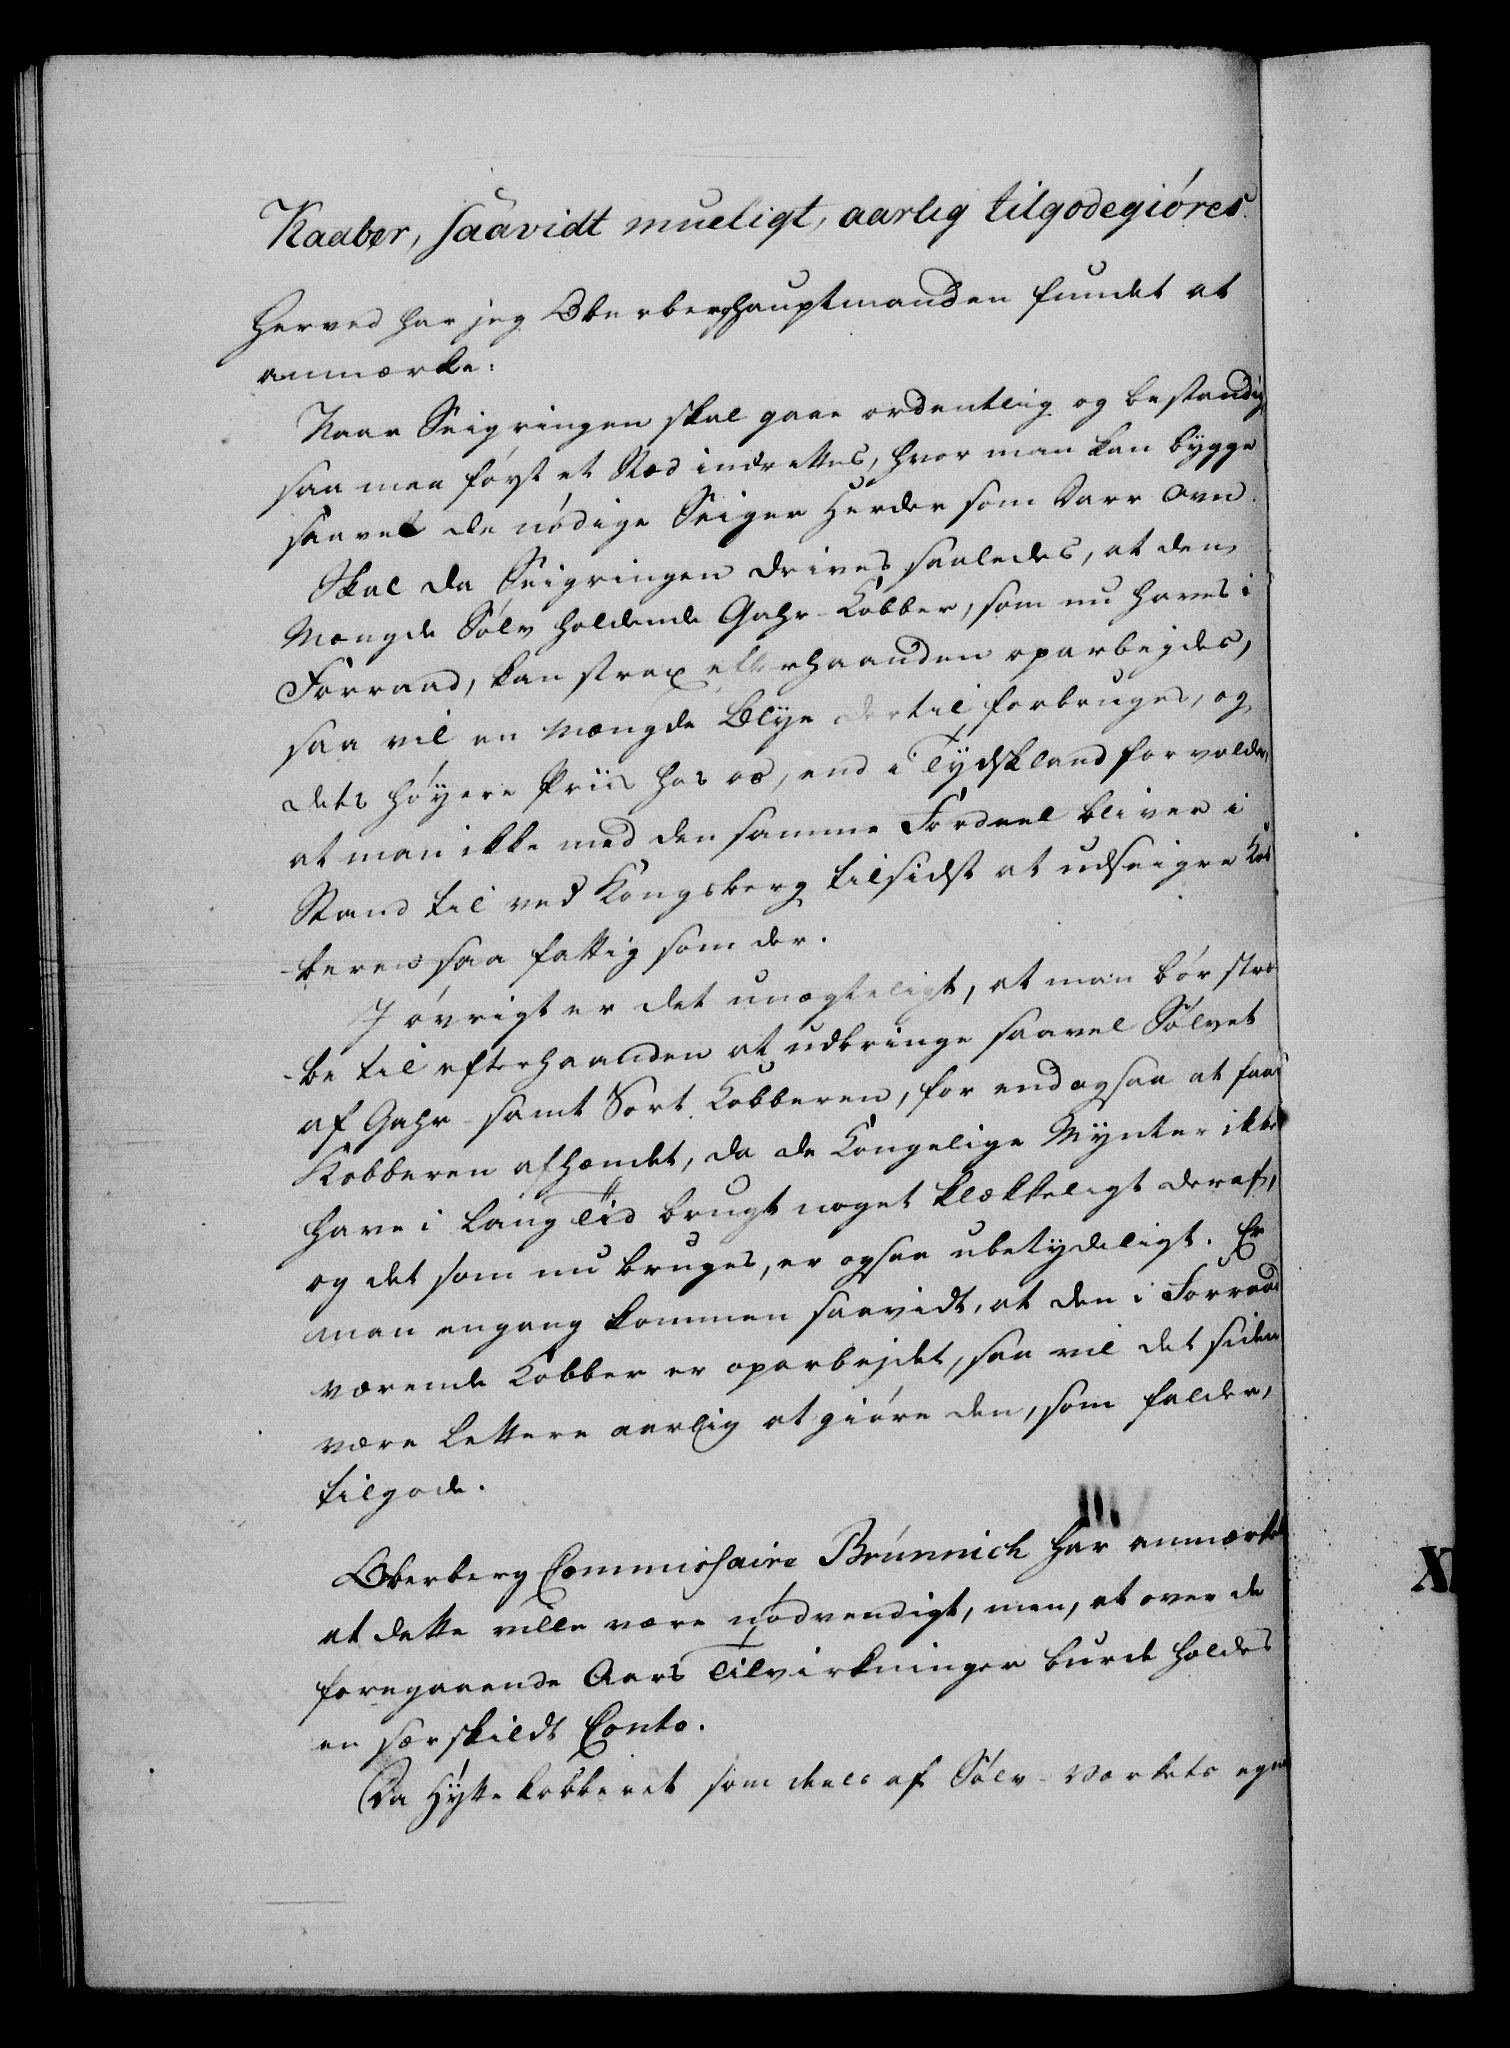 Kaaber, saavidt mueligt, aarlig tilgodegiøres.
Herved har jeg Oberberghauptmanden fundet at
anmærke:
Naar Seigringen skal gaae ordentlig og bestandig,
saa maa først et Stæd indrettes, hvor man kan bygge
saavel de nødige Seiger Herder som Darr Ovn.
Skal da Seigringen drives saaledes, at den
Mængde Sølv holdende Gahr-Kobber, som nu haves i
Forraad, kan strax efterhaanden oparbeydes,
saa vil en Mængde Blye dertil forbruges, og
dets høyere Priis hos os, end i Tydskland forvolder,
at man ikke med den samme Fordeel bliver i
Stand til ved Kongsberg tilsidst at udseigre Kob
-beren saa fattig som der.
I øvrigt er det unægteligt, at man bør stræ
-be til efterhaanden at udbringe saavel Sølvet
af Gahr- samt Sort Kobberen, for end ogsaa at faae
Kobberen afhændet, da de Kongelige Mynter ikke
have i lang Tid brugt noget klækkeligt deraf,
og det som nu bruges, er ogsaa ubetydeligt. Er
man engang kommen saavidt, at den i Forraad
værende Kobber er oparbejdet, saa vil det siden
være lettere aarlig at giøre den, som falder,
tilgode.
Oberberg Commissaire Brünnich har anmærket
at dette ville være nødvendigt, men, at over de
foregaaende Aars Tilvirkninger burde holdes
en særskildt Conto.
Da Hytte Kobberet som deels af Sølv-Værkets egne
X